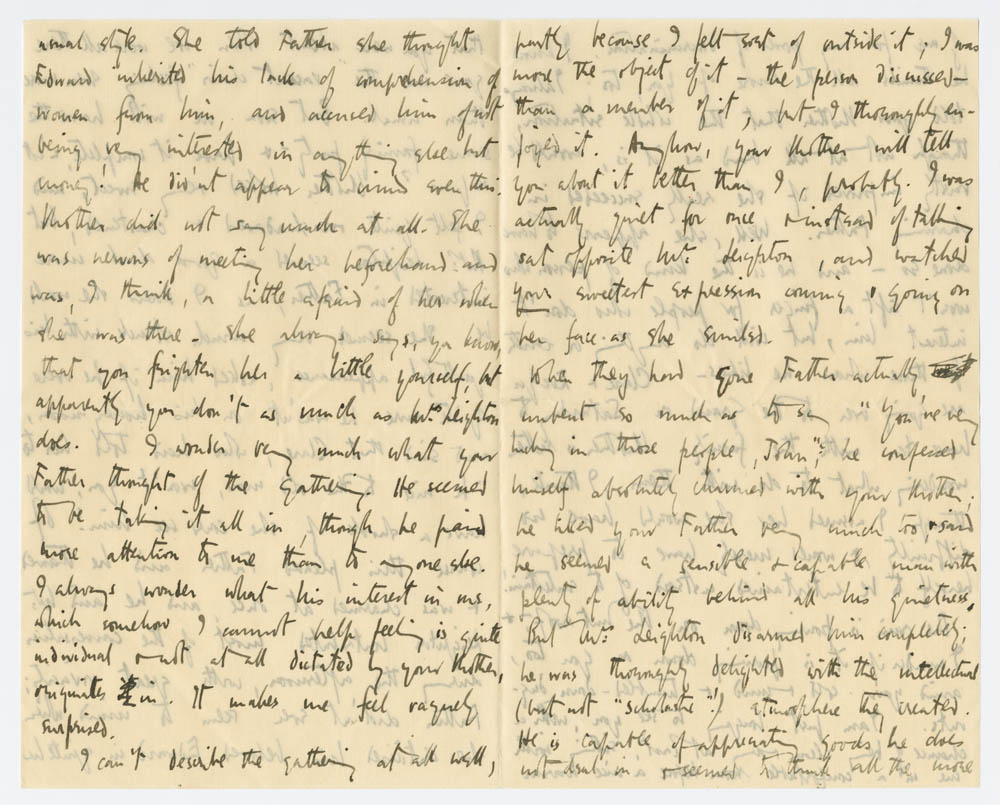 usual style. She told Father she thought
Edward inherited his lack of comprehension of
women from him, and accused him of not
being very interested in anything else but
money! He did'nt appear to mind even this.
Mother did not say much at all. She
was nervous of meeting her beforehand and
was, I think, a little afraid of her when
she was there. She always says, you know,
that you frighten her a little yourself, but
apparently you don't as much as Mrs Leighton
does. I wonder very much what your
Father thought of the gathering. He seemed
to be taking it all in, though he paid
more attention to me than to anyone else.
I always wonder what his interest in me,
which somehow I cannot help feeling is quite
individual & not at all dictated by your Mother,
originates in. It makes me feel vaguely
surprised.
I can't describe the gathering at all well,
partly because I felt sort of outside it; I was
more the object of it – the person discussed –
than a member of it, but I thoroughly en-
joyed it. Anyhow, your Mother will tell
you about it better than I, probably. I was
actually quiet for once & instead of talking
sat opposite Mrs Leighton, and watched
your sweetest expression coming & going on
her face as she smiled.
When they had gone Father actually
unbent so much as to say "You've very
lucky in those people, John", he confessed
himself absolutely charmed with your Mother;
he liked your Father very much too, & said
he seemed a sensible & capable man with
plenty of ability behind all his quietness.
But Mrs Leighton disarmed him completely;
he was thoroughly delighted with the intellectual
(but not "scholastic"!) atmosphere they created.
He is capable of appreciating goods he does
not deal in & seemed to think all the more